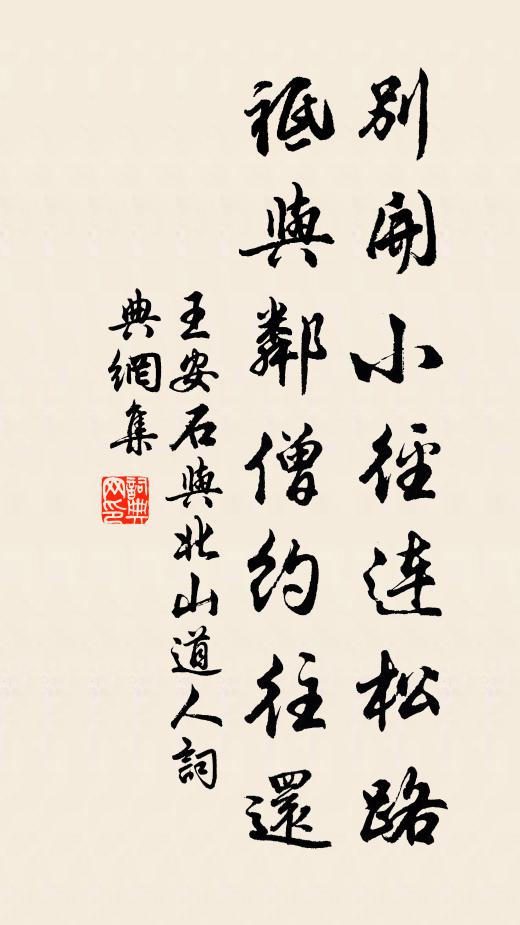 別開小徑連松路
祗與鄰僧約往還
王安石與北山道人詞
典網集
詞典
网印